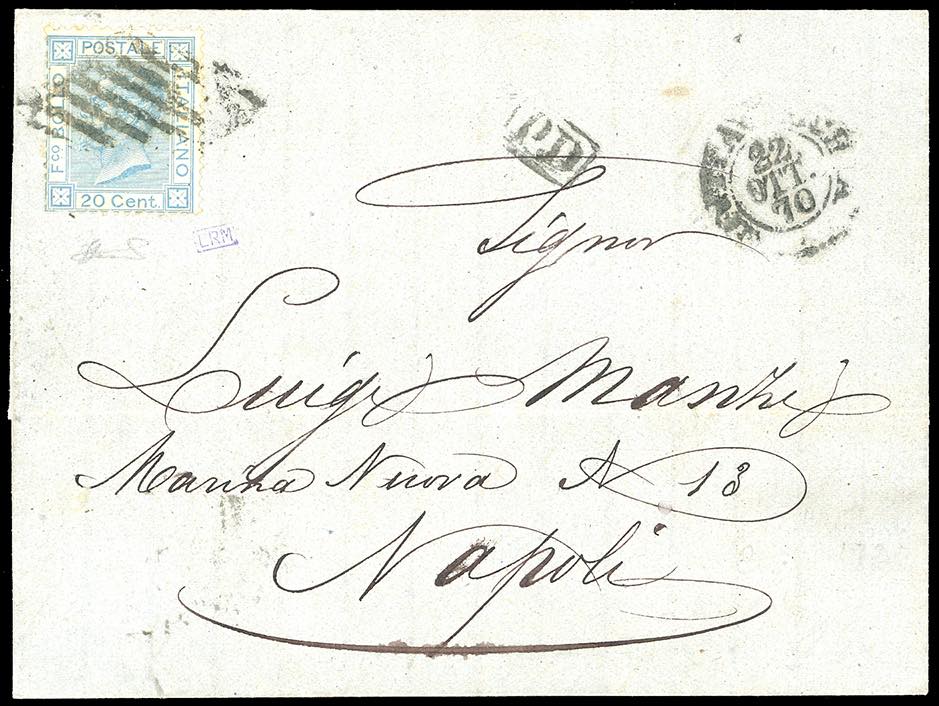 POSTALE
Fco BOLLO
ITALIANO
20 Cent.
LRM
PD
22
OTT.
70
Signor
Luigi Manzi
Marina Nuova N 13
Napoli